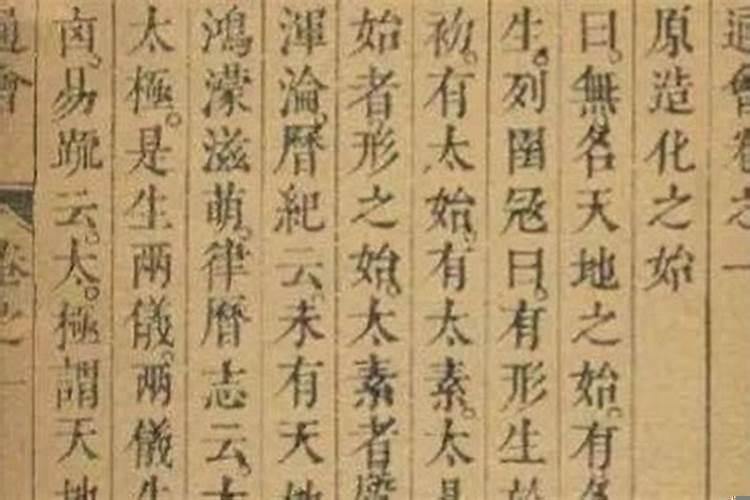 通會卷之一
原造化之始
曰無名天地之始有名
生列圄冦曰有形生於
初有太始有太素太易
始者形之始太素者
渾淪曆紀云未有天地
鴻濛滋萌律曆志云太
太極是生兩儀兩儀生
卤易䟽云太極謂天地
通會 卷之一